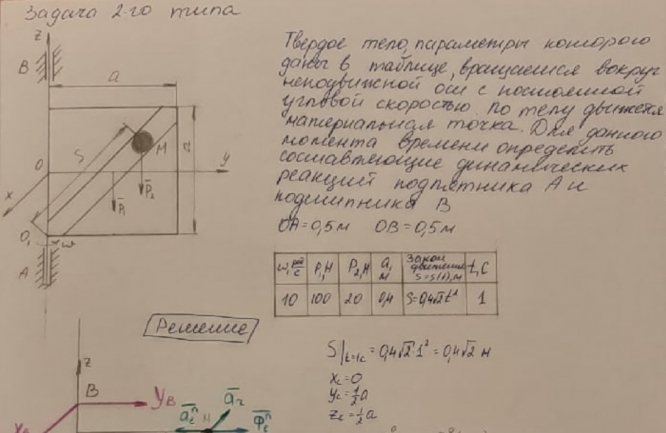 Задача 2-го типа
z
B
a
S
M
a
O
y
P̄₁
P̄₂
x
O₁
ω
A
Твердое тело, параметры которого
даны в таблице, вращается вокруг
неподвижной оси с постоянной
угловой скоростью. По телу движется
материальная точка. Для данного
момента времени определить
составляющие динамических
реакций подпятника A и
подшипника B
OA=0,5м OB=0,5м
ω, рад/с P₁,Н P₂,Н a, м Закон движения S=S(t),м t,с
10 100 20 0,4 S=0,4√2t² 1
Решение
S|t=1c = 0,4√2·1² = 0,4√2 м
xc=0
yc=½a
zc=½a
z
B
YB
XB